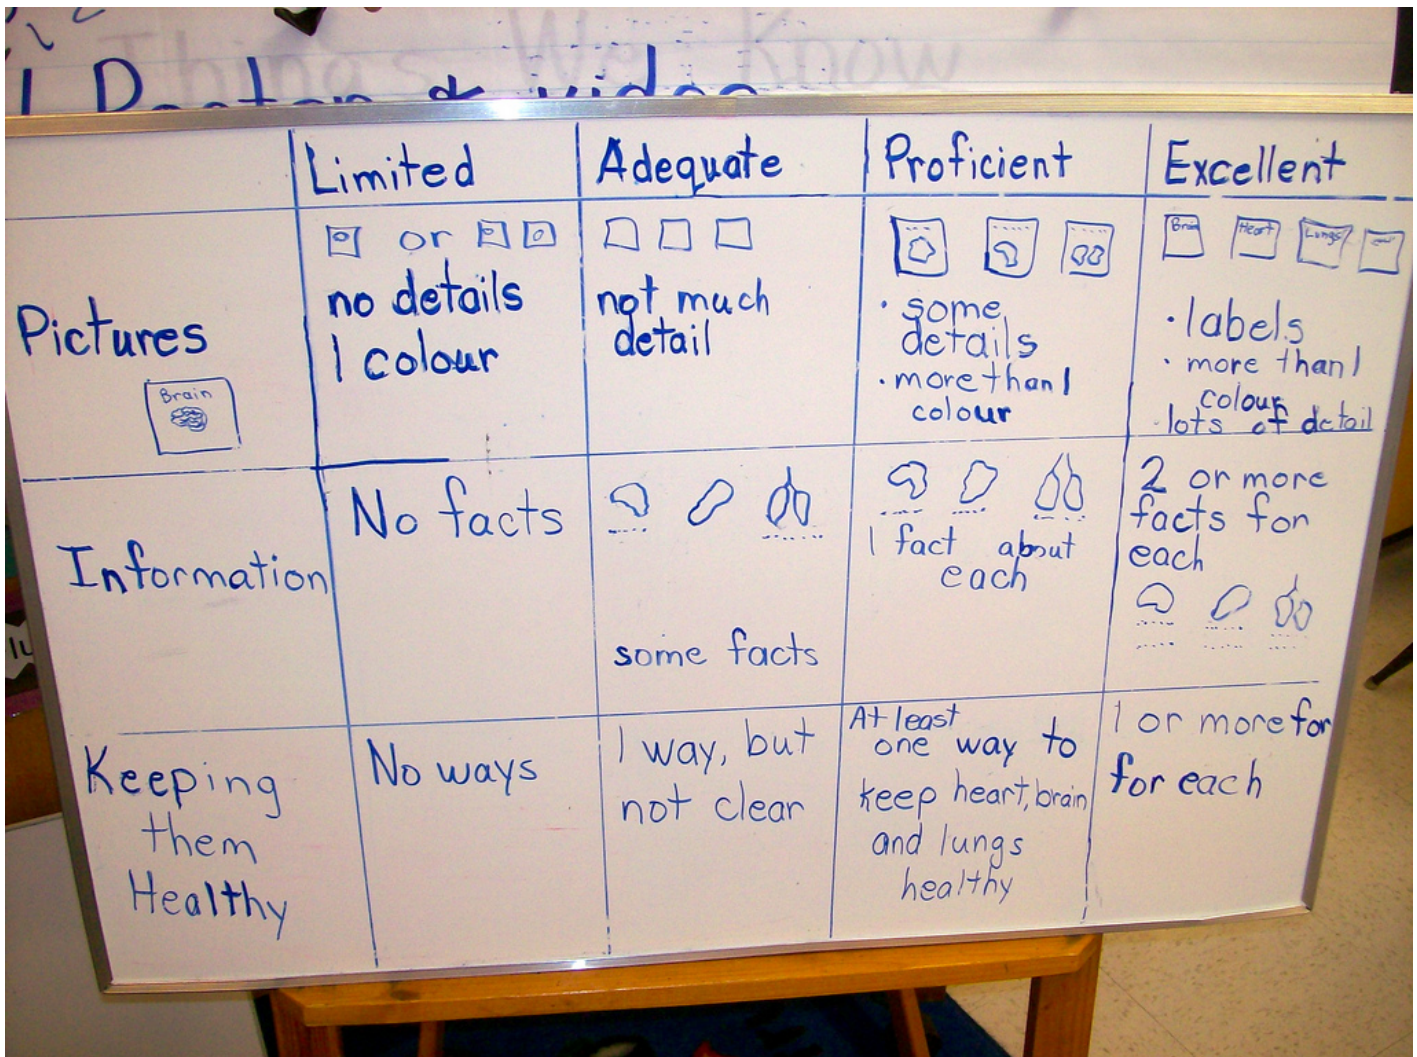 Things We Know
Limited
Adequate
Proficient
Excellent
Pictures
Brain
or
no details
1 colour
not much
detail
• some
details
• more than 1
colour
Brain Heart Lungs
• labels
• more than 1
colour
lots of detail
Information
No facts
some facts
1 fact about
each
2 or more
facts for
each
Keeping
them
Healthy
No ways
1 way, but
not clear
At least
one way to
keep heart, brain
and lungs
healthy
1 or more for
for each